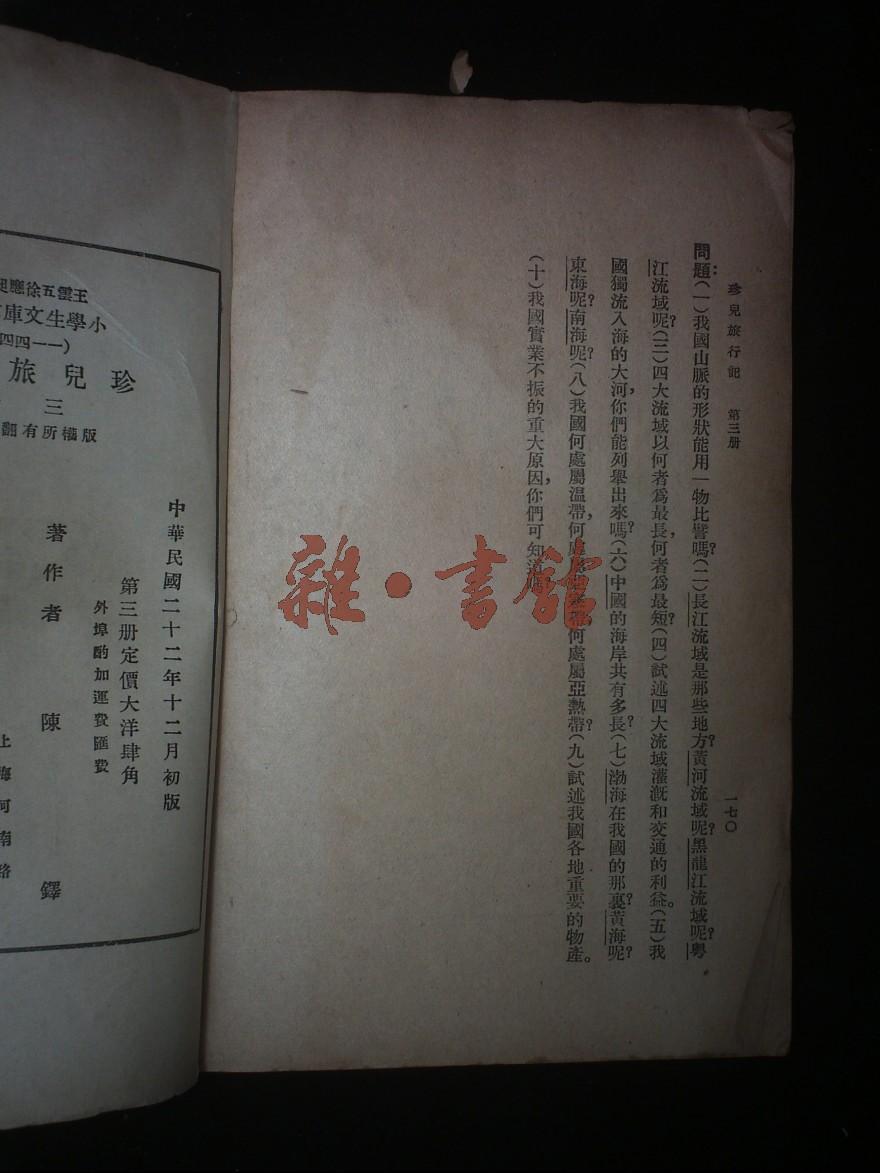 珍兒旅行記 第三册 一七〇
問題：(一)我國山脈的形狀能用一物比譬嗎?(二)長江流域是那些地方?黃河流域呢?黑龍江流域呢?粵
江流域呢?(三)四大流域以何者爲最長,何者爲最短?(四)試述四大流域灌漑和交通的利益。(五)我
國獨流入海的大河,你們能列舉出來嗎?(六)中國的海岸共有多長?(七)渤海在我國的那裏?黃海呢?
東海呢?南海呢?(八)我國何處屬温帶,何處 何處屬亞熱帶?(九)試述我國各地重要的物產。
(十)我國實業不振的重大原因,你們可知道
雜·書館
王雲五徐應
小學生文庫
珍兒旅
三
版權所有翻
中華民國二十二年十二月初版
第三册定價大洋肆角
外埠酌加運費匯費
著作者 陳鐸
上海河南路